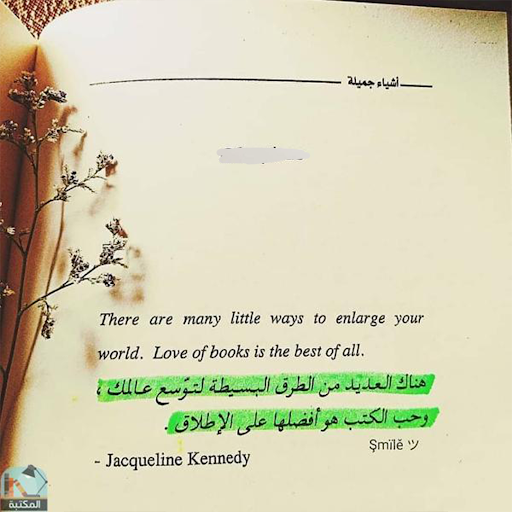 أشياء جميلة
There are many little ways to enlarge your
world. Love of books is the best of all.
هناك العديد من الطرق البسيطة لتوّسع عالمك ،
وحب الكتب هو أفضلها على الإطلاق .
Şmïlĕ ツ
- Jacqueline Kennedy
المكتبة